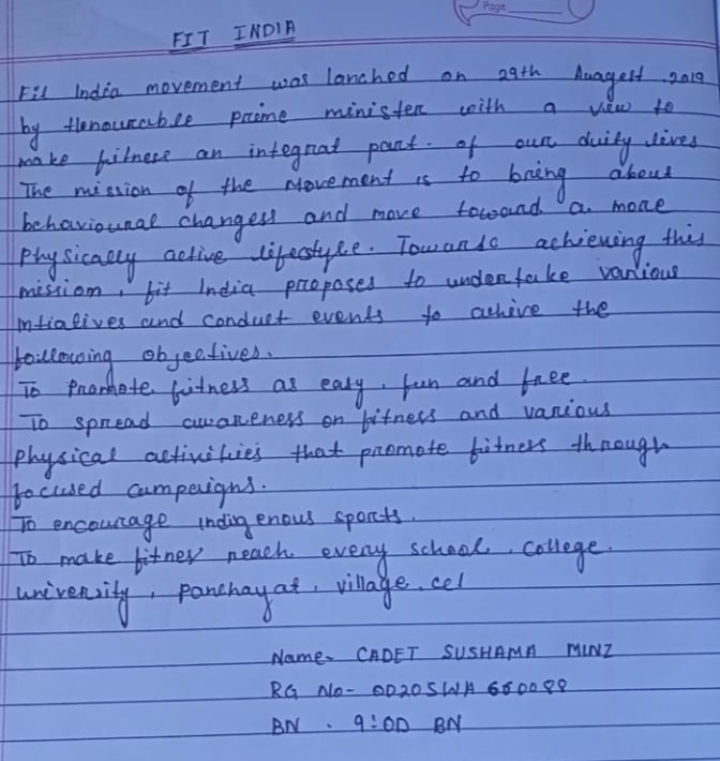 Page
FIT INDIA
Fit India movement was lanched on 29th Auagest, 2019
by Honourable prime minister with a view to
make fitness an integral part. of our duily lives
The mission of the Movement is to bring about
behavioural changess and move toward a more
Physically active lifestyle. Towards achieving this
mission, fit India proposes to undertake various
intialives and conduct events to achive the
following objectives.
To Promote fitness as easy, fun and free.
To spread awareness on fitness and various
Physical activities that promote fitness through
focused campaigns.
To encourage indigenous sports.
To make fitnes reach every school, college.
university, panchayat, village.
Name- CADET SUSHAMA MINZ
RG No- OD20SWA
BN . 9:OD BN